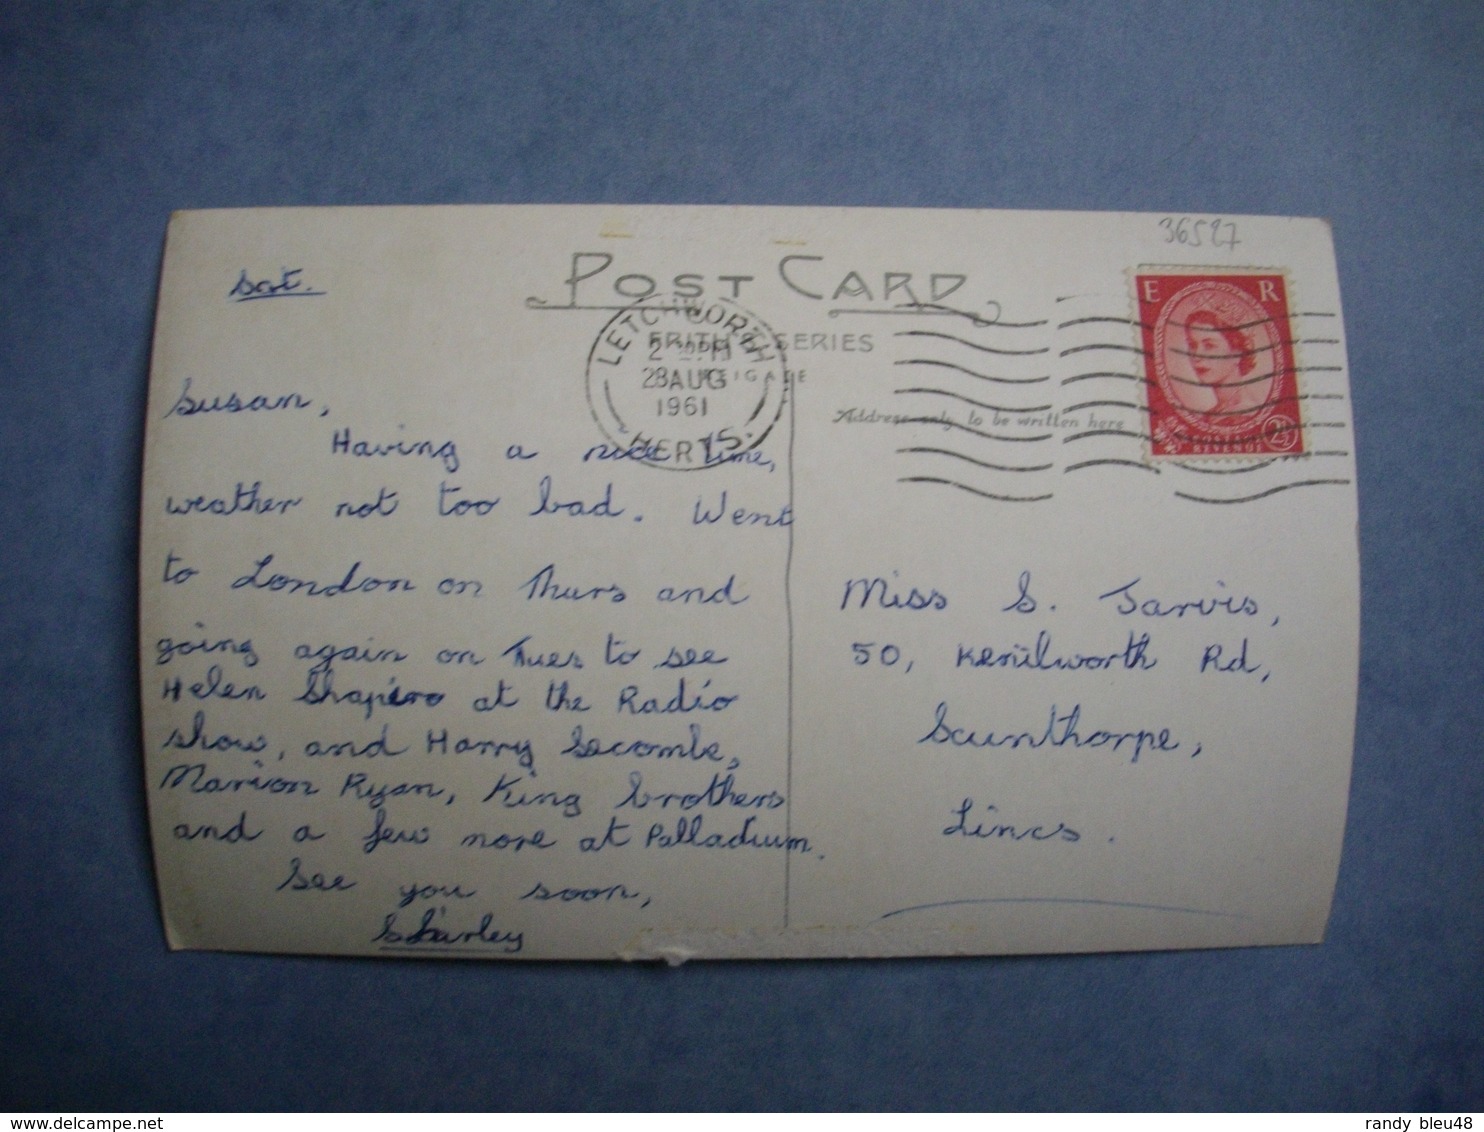 36527
POST CARD
FRITH'S SERIES
REIGATE
LETCHWORTH
2 PM
28 AUG
1961
HERTS.
E R
REVENUE
2½
Address only to be written here
Sat.
Susan,
Having a nice time,
weather not too bad. Went
to London on Thurs and
going again on Tues to see
Helen Shapiro at the Radio
show, and Harry Secombe,
Marion Ryan, King brothers
and a few more at Palladium.
See you soon,
Shirley
Miss S. Jarvis,
50, Kenilworth Rd,
Scunthorpe,
Lincs.
delcampe.net
randy bleu48